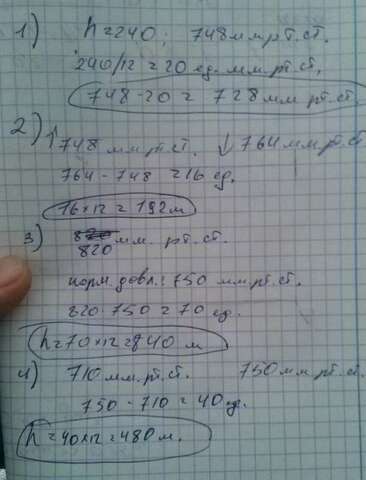 1) h=240; 748 мм.рт.ст.
240/12=20 ед. мм.рт.ст.
748-20= 728мм рт.ст.
2) ↑748 мм.рт.ст. ↓764 мм.рт.ст
764-748=16 ед.
16×12=192м
3) 820 мм. рт.ст.
норм. давл.: 750 мм.рт.ст.
820-750=70 ед.
h=70×12=840 м
4) 710 мм.рт.ст. 750 мм.рт.ст.
750-710=40 ед.
h=40×12=480м.